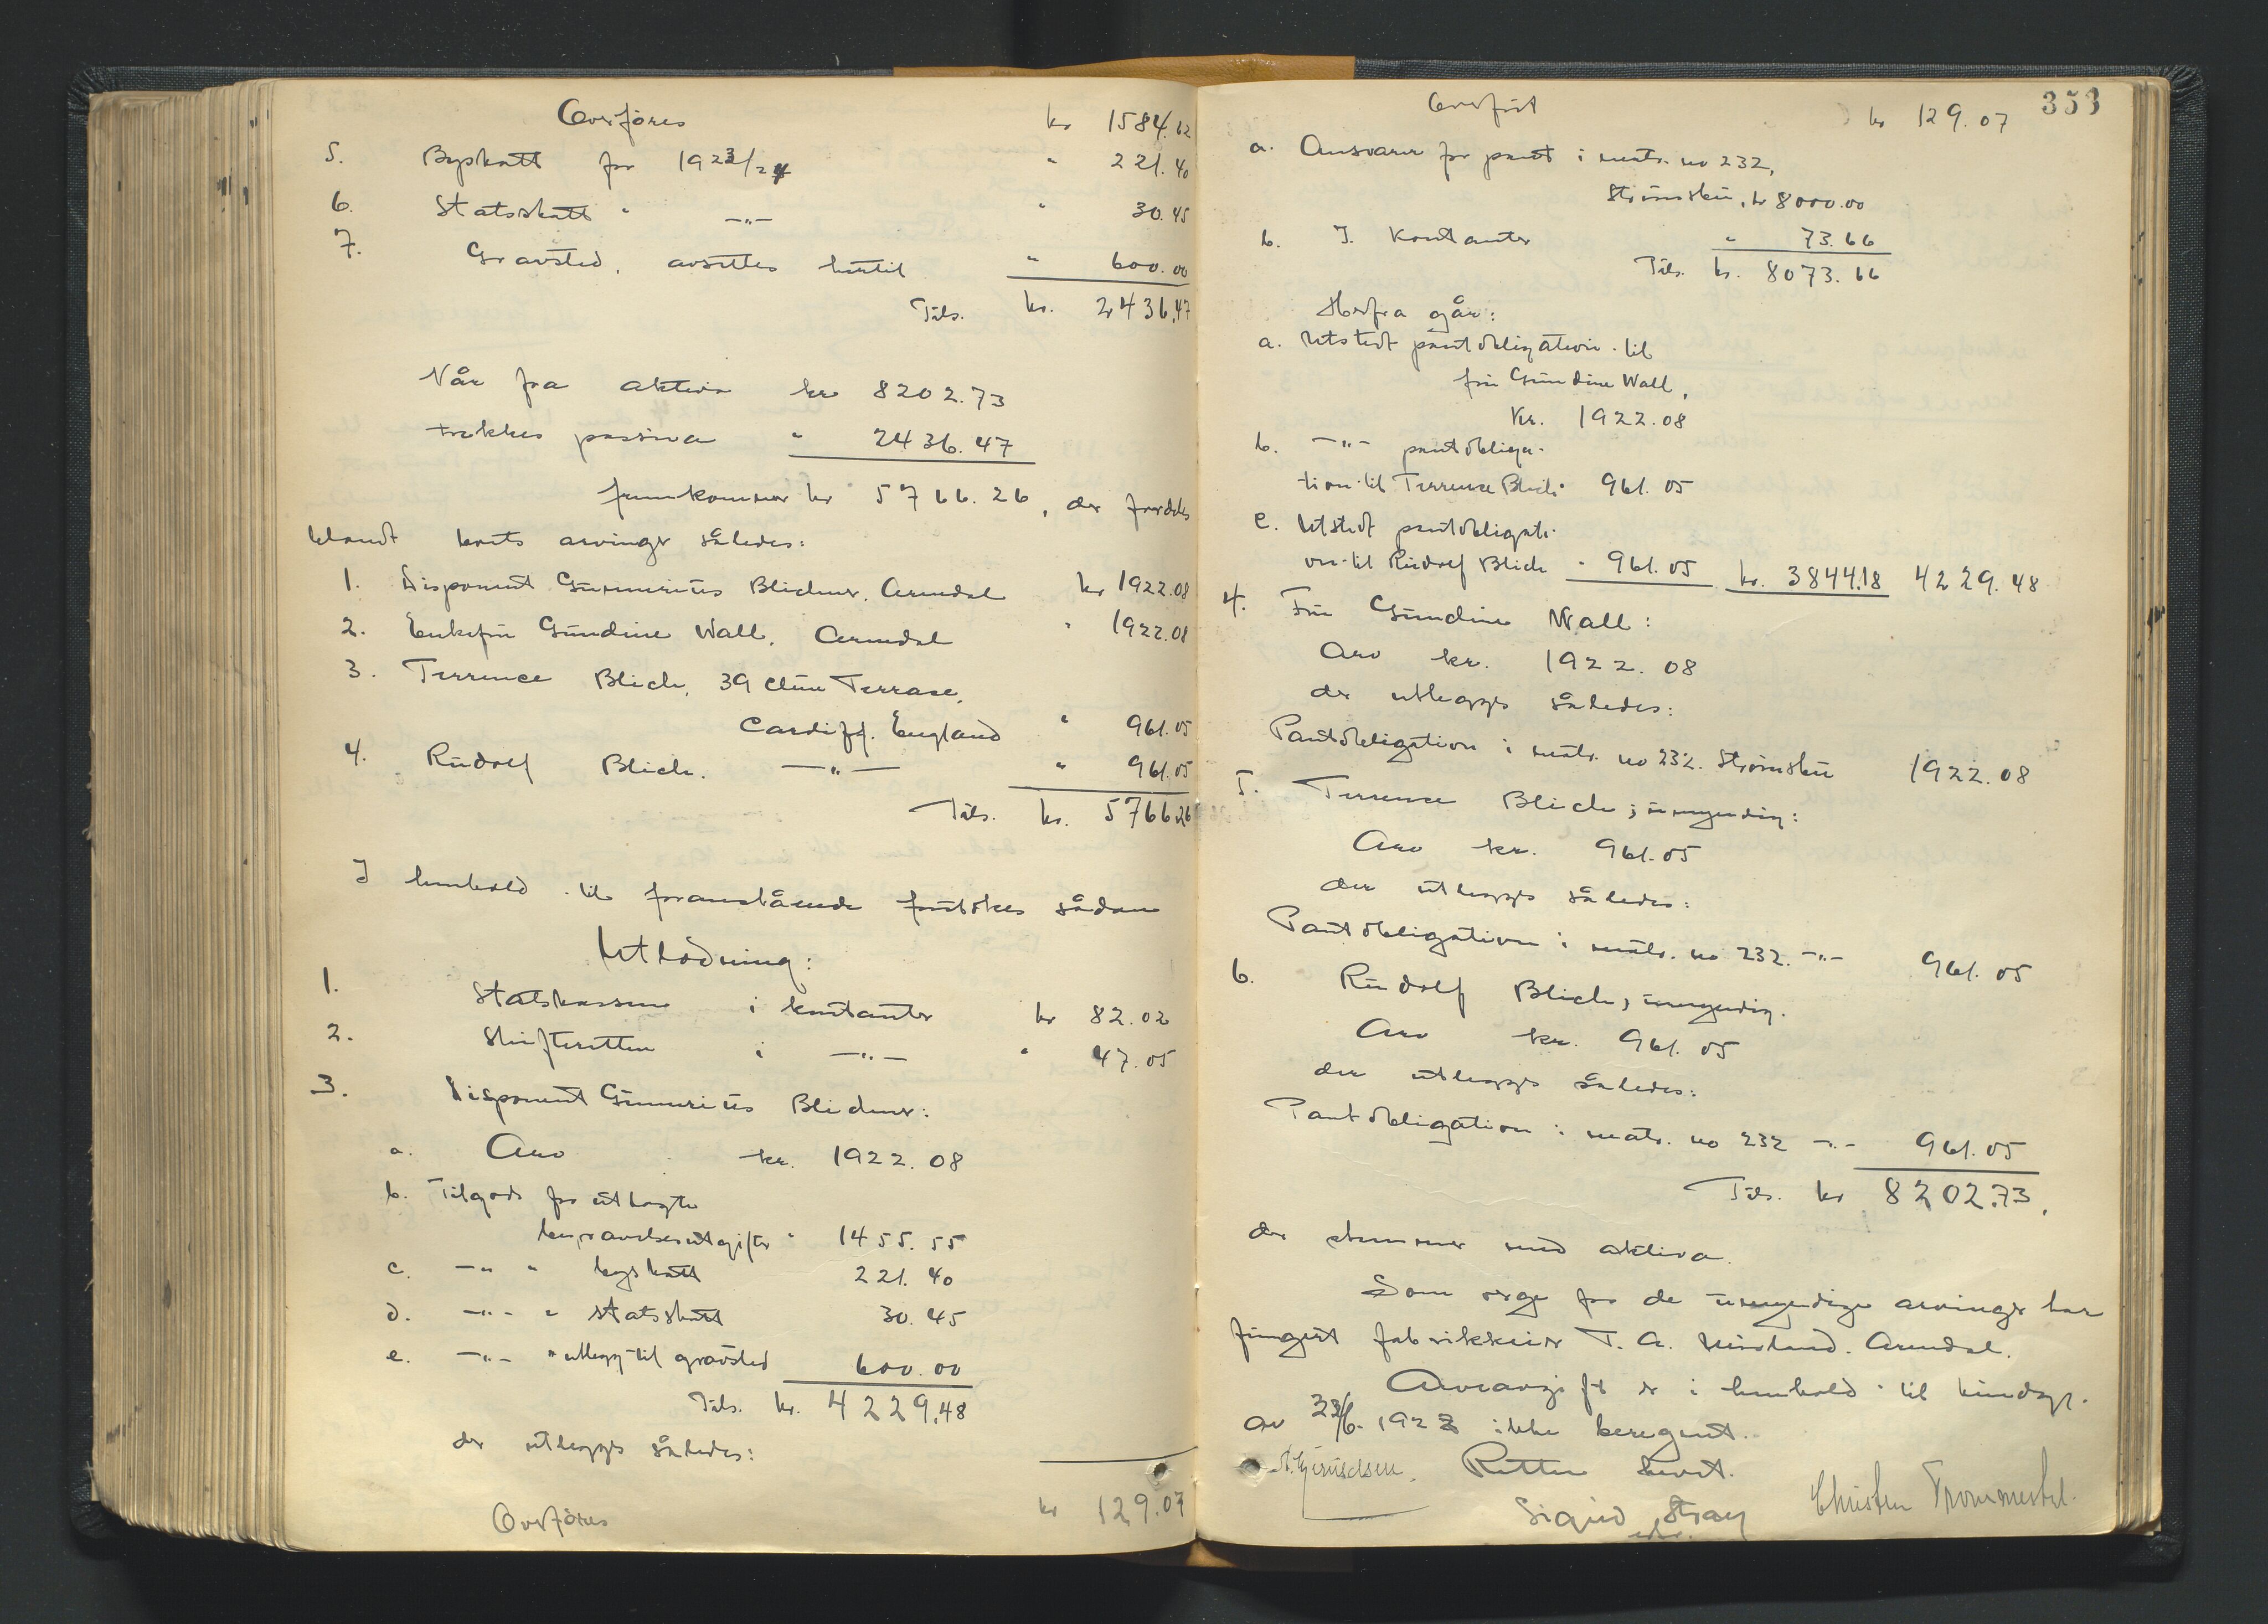 Overføres kr 1584.62
5. Byskatt for 1923/24 " 221.40
6. Statsskatt " —"— " 30.45
7. Gravsted, avsettes hertil " 600.00
Tils. kr. 2436.47
Når fra aktiva kr 8202.73
trekkes passiva " 2436.47
fremkommer kr 5766.26, der fordeles
blandt boets arvinger således:
1. Disponent Gunnerius Blichner, Arendal kr 1922.08
2. Enkefru Gundine Wall, Arendal " 1922.08
3. Terrence Blich, 39 Clun Terrase,
Cardiff. England " 961.05
4. Rudolf Blich. —"— " 961.05
Tils. kr. 5766.26
I henhold til foranstående foretokes sådan
Utlodning:
1. Statskassen i kontanter kr 82.02
2. Skifteretten i —"— " 47.05
3. Disponent Gunnerius Blichner:
a. Arv kr. 1922.08
b. Tilgode for utlagte
begravelsesutgifter " 1455.55
c. —" " byskatt 221.40
d. —"— " statsskatt 30.45
e. —"— " utlegg til gravsted 600.00
Tils. kr. 4229.48
der utlegges således:
Overføres kr 129.07
353
Overført kr 129.07
a. Ansvarer for pant i matr. no 232,
Strømsbu, kr 8000.00
b. I. Kontanter " 73.66
Tils. kr. 8073.66
Herfra går:
a. Utstedt pantobligation til
fru Gundine Wall,
Kr. 1922.08
b. —"— pantobliga-
tion til Terrence Blich 961.05
c. Utstedt pantobligati-
on til Rudolf Blich " 961.05 kr. 3844.18 4229.48
4. Fru Gundine Wall:
Arv kr. 1922.08
der utlegges således:
Pantobligation i matr. no 232. Strømsbu 1922.08
5. Terrence Blich; umyndig:
Arv kr. 961.05
der utlegges således:
Pantobligation i matr. no 232. —"— 961.05
6. Rudolf Blich, umyndig.
Arv kr. 961.05
der utlegges således:
Pantobligation i matr. no 232 —"— 961.05
Tils. kr 8202.73,
der stemmer med aktiva.
Som verge for de umyndige arvinger har
fungert fabrikkeier T. A. Arendal.
Arveavgift er i henhold til
av 22/6. 1923 ikke beregnet.
Retten hevet.
Sigrid Stray
Christen Trommestad.